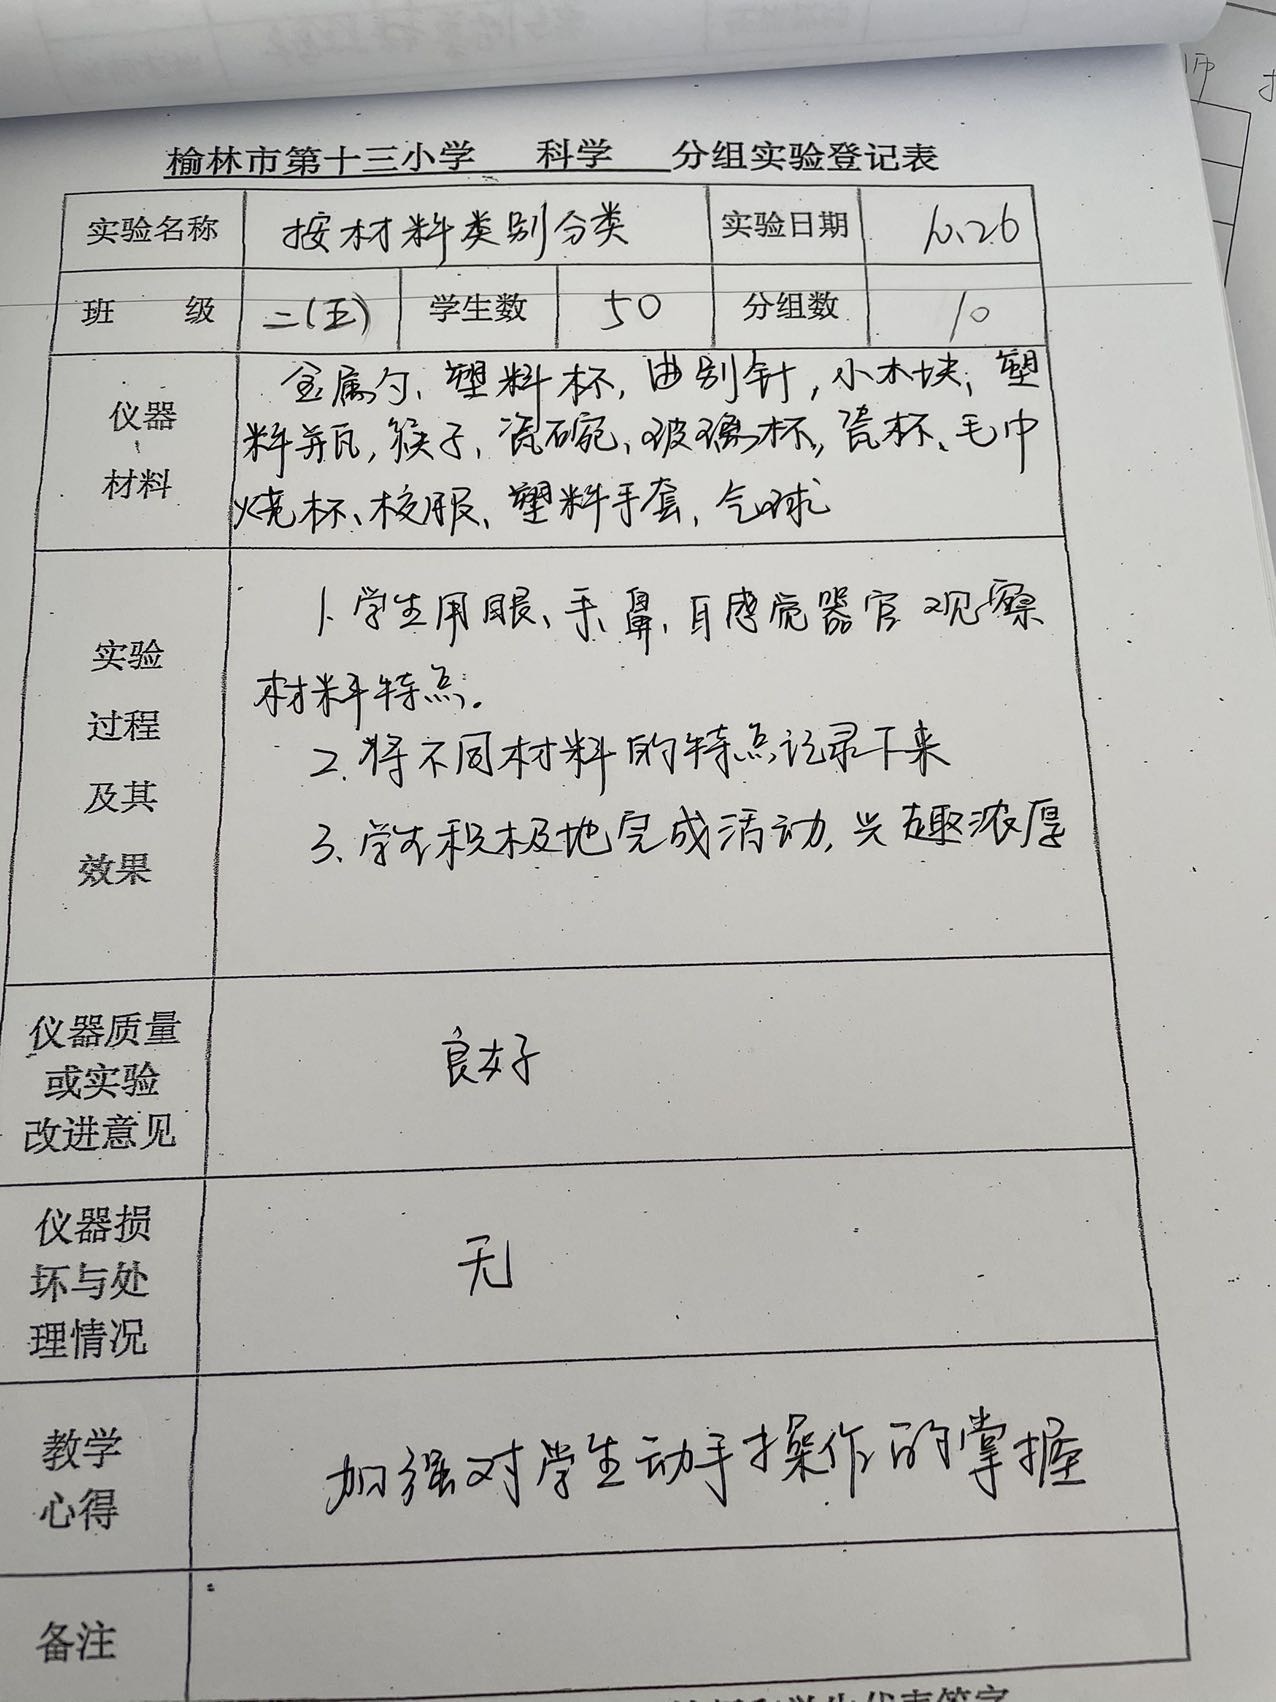 榆林市第十三小学 科学 分组实验登记表
实验名称 按材料类别分类 实验日期 10.26
班 级 二(五) 学生数 50 分组数 10
仪器 材料
金属勺、塑料杯,曲别针,小木块,塑
料瓶,筷子,瓷碗、玻璃杯,瓷杯、毛巾
烧杯、校服、塑料手套,气球
实验
过程
及其
效果
1.学生用眼、手、鼻,耳感觉器官观察
材料特点.
2.将不同材料的特点记录下来
3.学生积极地完成活动,兴趣浓厚
仪器质量
或实验
改进意见
良好
仪器损
坏与处
理情况
无
教学
心得
加强对学生动手操作的掌握
备注